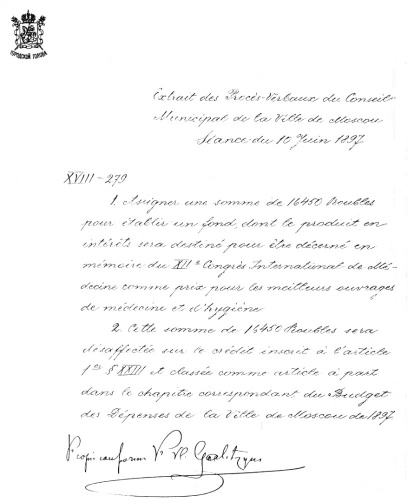 ГОРОДСКОЙ ГОЛОВА
Extrait des Procès-Verbaux du Conseil
Municipal de la Ville de Moscou
Séance du 10 Juin 1897
XVIII-279
1. Assigner une somme de 16450 Roubles
pour établir un fond, dont le produit en
intérêts sera destiné pour être décerné en
mémoire du XIIe Congrès International de Mé-
decine comme prix pour les meilleurs ouvrages
de médecine et d'hygiène
2. Cette somme de 16450 Roubles sera
désaffectée sur le crédit inscrit à l'article
1er § XXIII et classée comme article à part
dans le chapitre correspondant du Budget
des Dépenses de la Ville de Moscou de 1897.